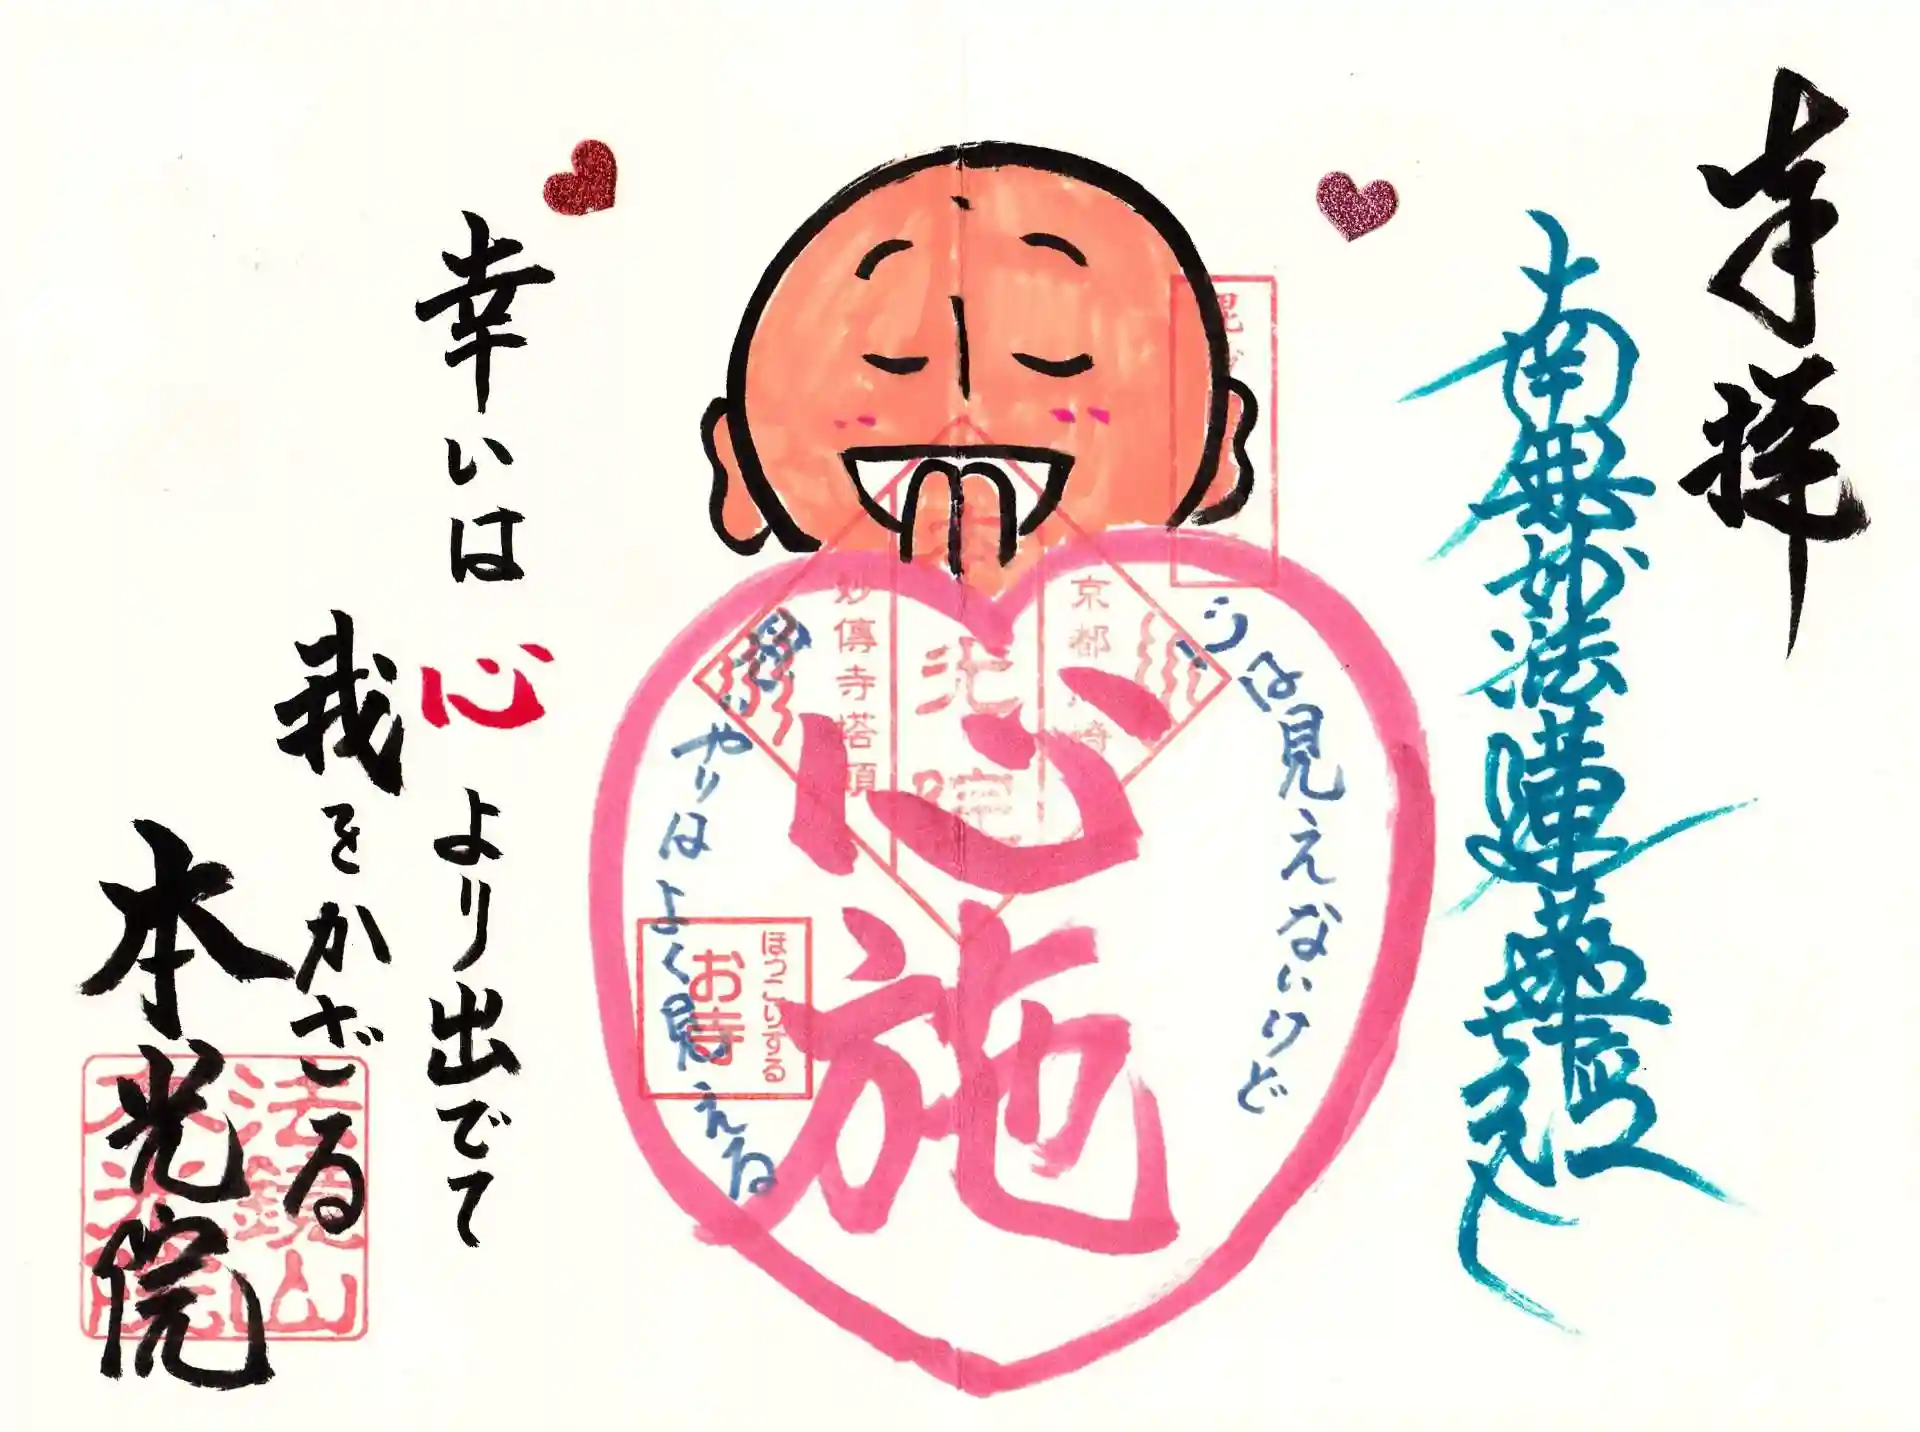 奉拝
南無妙法蓮華経
心は見えないけど
心施
思いやりはよく見える
京都
本光院
妙傳寺塔頭
ほっこりする
お寺
幸いは心より出でて
我をかざる
本光院
法鏡山
本光院